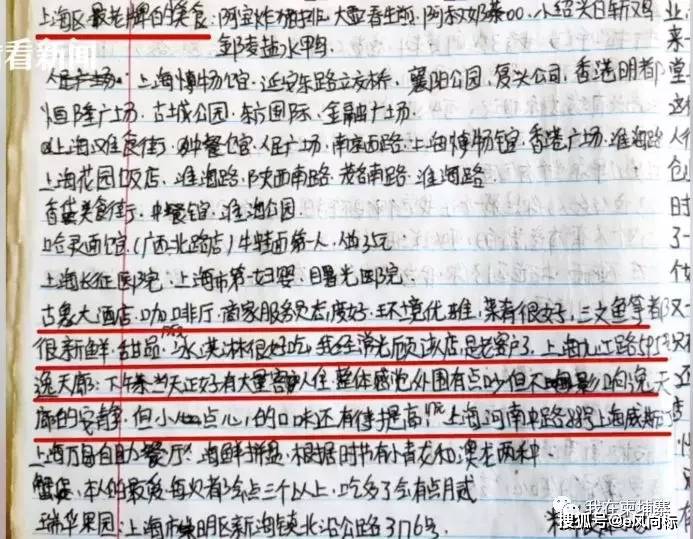 看看新闻
上海区最老牌的美食:阿宝炸猪排、大壶春生煎、阿叔奶茶00、小绍兴白斩鸡
盐水鸭
人民广场、上海博物馆、延安东路立交桥、襄阳公园、复兴公司、香港明都
恒隆广场、古城公园、东方国际、金融广场
上海美食街 中餐馆、人民广场、南京西路、上海博物馆、香港广场、淮海路
上海花园饭店、淮海路、陕西南路、茂名南路、淮海路
美食街、中餐馆、淮海公园
哈灵面馆、(广西北路店)牛蛙面第一人、25元
上海长征医院、上海市第一妇婴、曙光医院
古象大酒店、咖啡厅、商家服务员态度好、环境优雅、菜肴很好、三文鱼等都
很新鲜、甜品、冰淇淋很好吃,我经常光顾该店,是老客户了、上海九江路595号
逸天廊:下午茶当天正好有大量客人入住,整体感觉外围有点吵但不影响逸天
廊的安静、但小点心,的口味还有待提高,上海河南中路 上海威斯
上海万 自助餐厅:海鲜拼盘、根据时节有小青龙和澳龙两种
蟹 、本人的最爱每次都会点三个以上、吃多了会有点月贰
瑞华果园:上海市崇明区新海镇北沿公路3176号、
我在柬埔寨
搜狐号@风向标